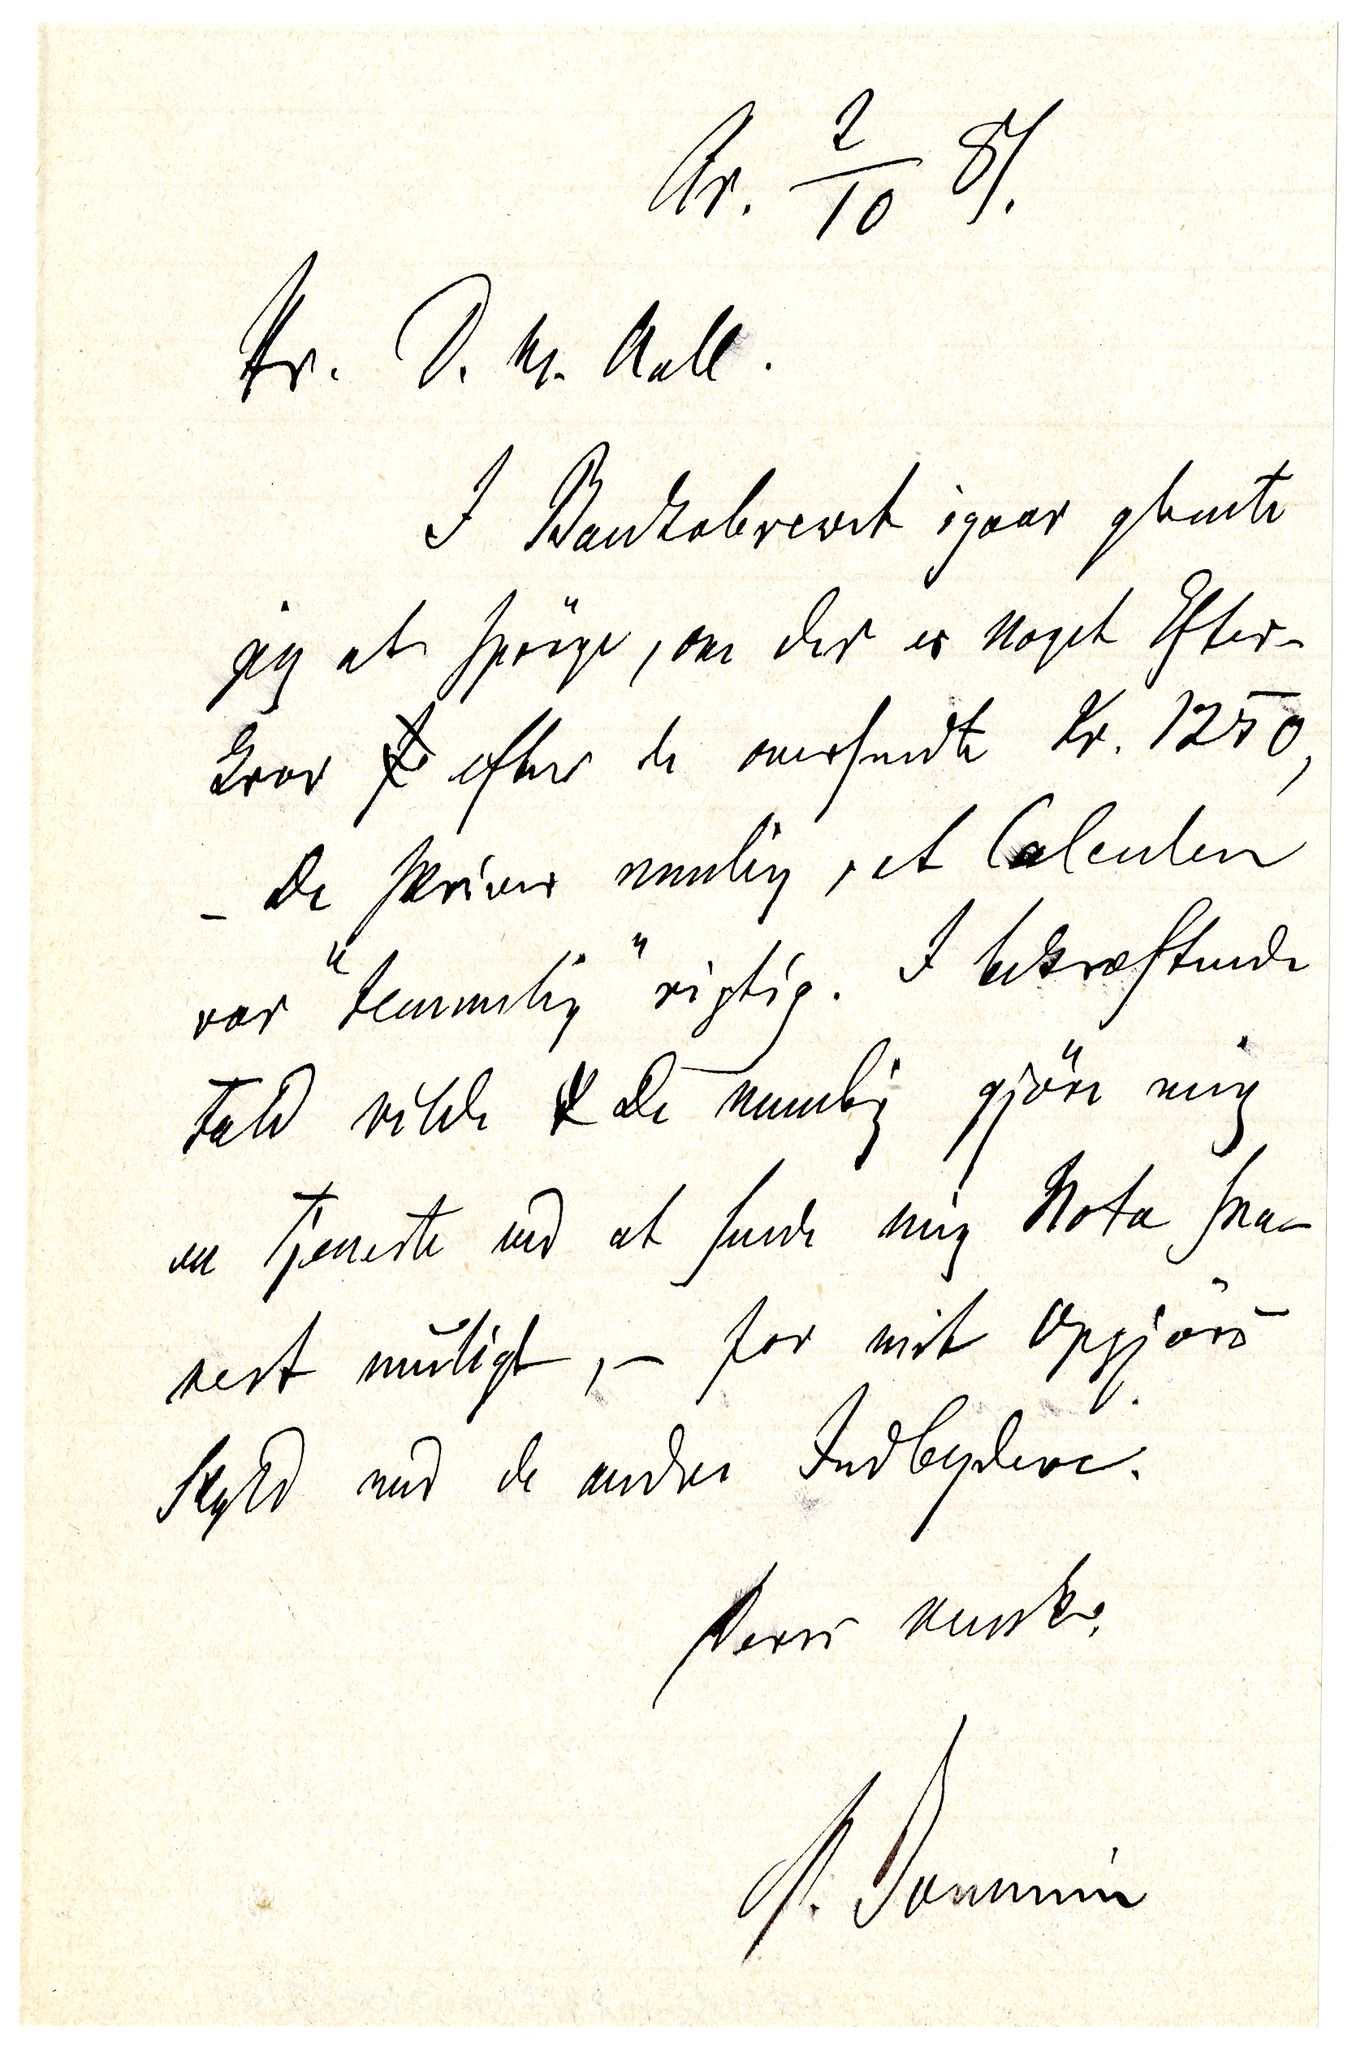 Kr. 2/10 87.
Hr. D. M. Aall.
I Bankobrevet igaar glemte
jeg at spörge, om der er noget Efter-
krav efter de oversendte Kr. 1250,
- De skriver nemlig, at Calculen
var "temmelig" rigtig. I bekræftende
Fald vilde De nemlig gjöre mig
en Tjeneste ved at sende mig Nota sna-
rest muligt, - for mit Opgjörs
Skyld med de andre Indbydere.
Deres